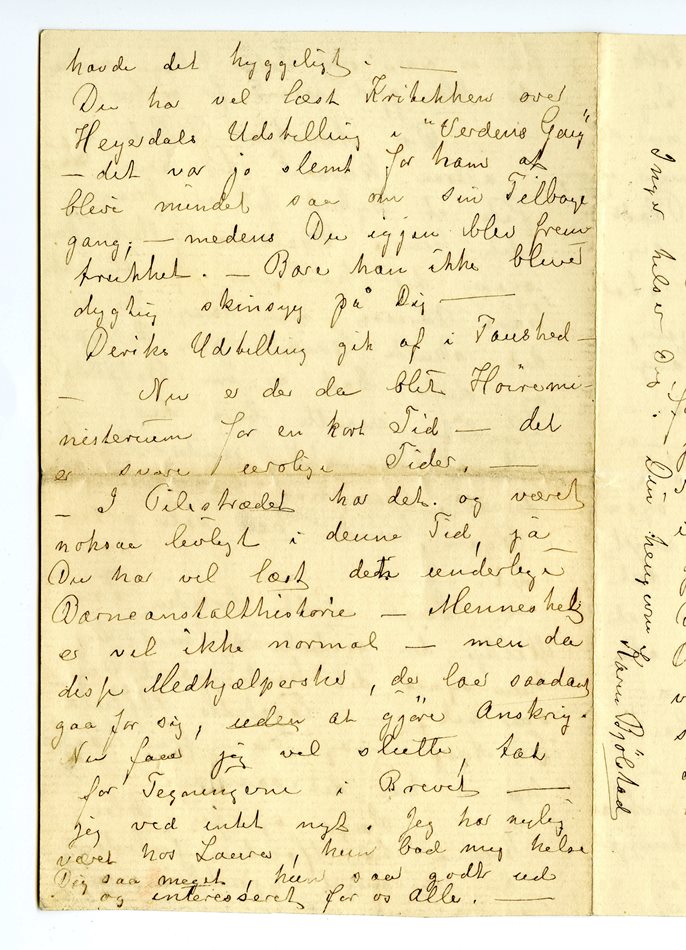 havde det hyggeligt. —
Du har vel læst Kritikken over
Heyerdals Udstilling i "Verdens Gang"
— det var jo slemt for ham at
blive mindet saa om sin Tilbage
gang, — medens Du igjen blev frem
trukket. — Bare han ikke blever
dygtig skinsyg på Dig —
Deriks Udstilling gik af i Taushed —
— Nu er der da blit Höiremi-
nisterium for en kort Tid — det
er svære urolige Tider. —
— I Pilestrædet har det og været
noksaa livligt i denne Tid, ja
Du har vel læst dette underlige
Barneanstalthistorie — Mennesket
er vel ikke normal — men da
disse Medhjælperske, der lar saadant
gaa for sig, uden at gjöre Anskrig.
Nu faar jeg vel slutte, tak
for Tegningerne i Brevet —
jeg ved intet nyt. Jeg har nylig
været hos Laura, hun bad mig helse
Dig saa meget, hun saa godt ud
og interesseret for os alle. —
Inger helser Dig.
Din hengivne Karen Bjölstad